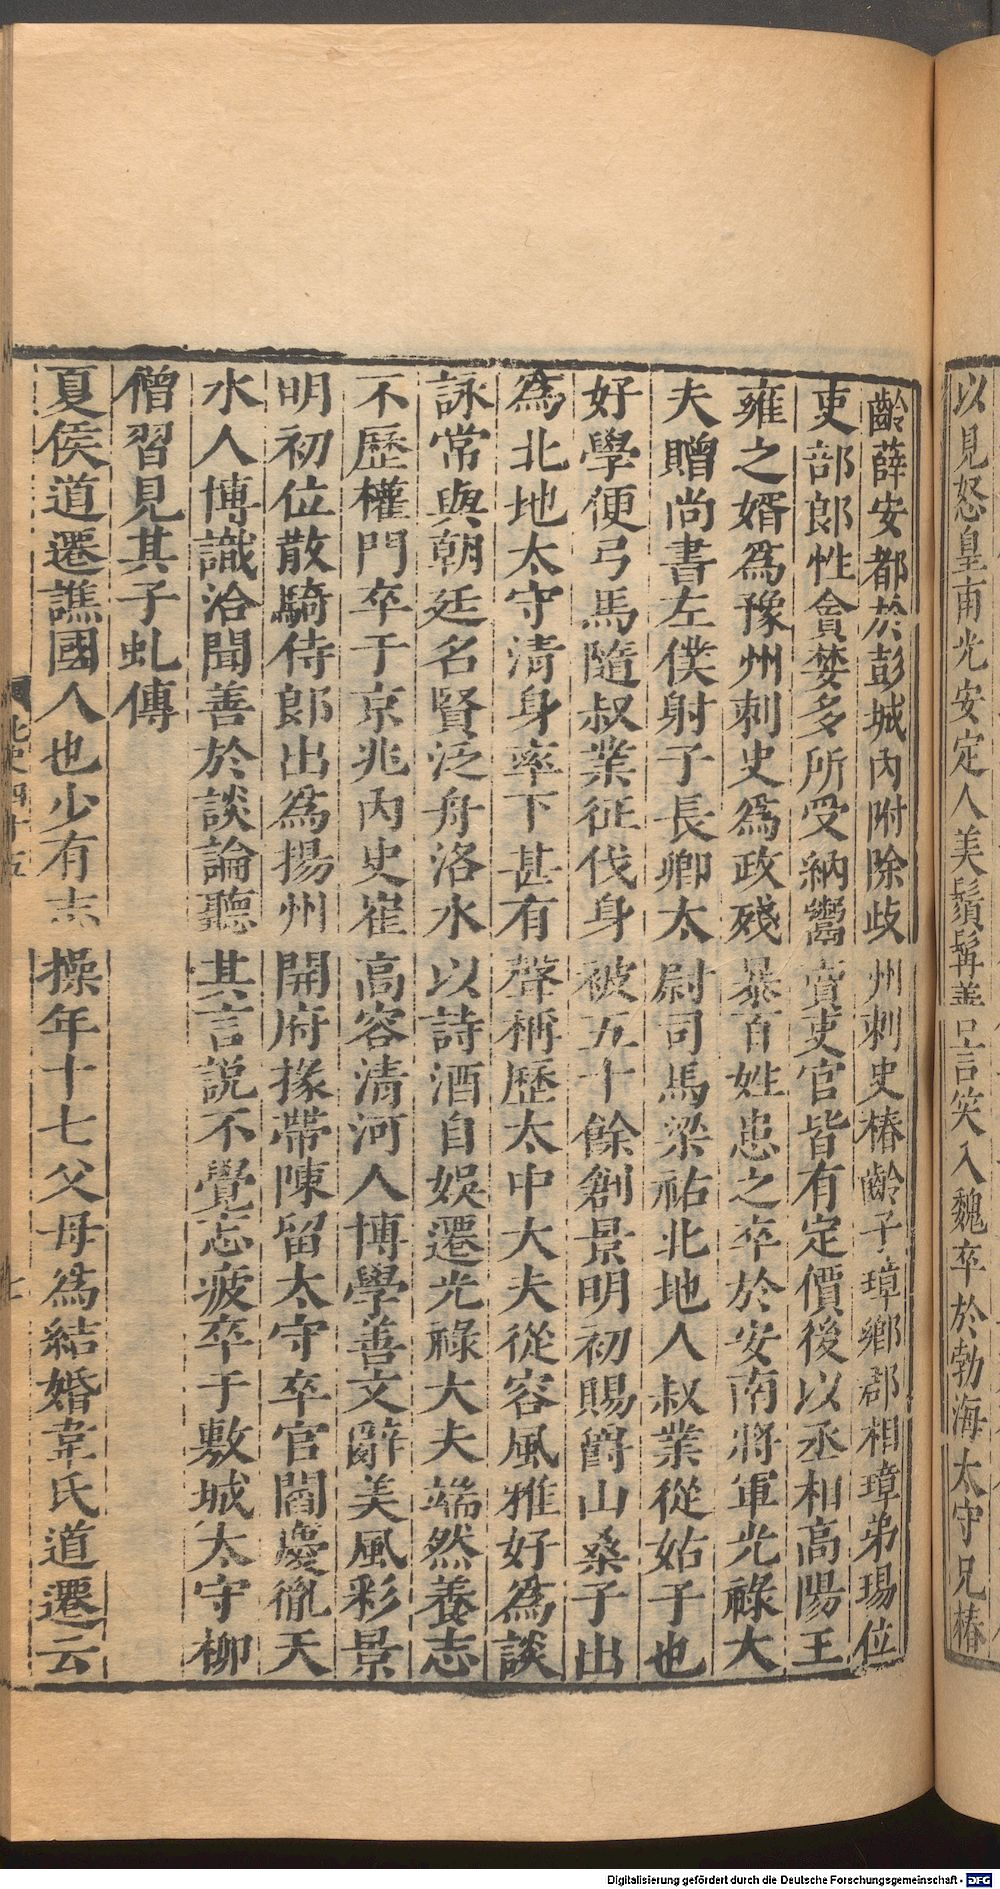 以見怒皇甫光安定人美鬚髯善言笑入魏卒於勃海太守兄椿
齡薛安都於彭城內附除歧州刺史椿齡子璋鄉郡相璋弟瑒位
吏部郎性貪婪多所受納鬻賣吏官皆有定價後以丞相高陽王
雍之婿為豫州刺史為政殘暴百姓患之卒於安南將軍光祿大
夫贈尚書左僕射子長卿太尉司馬梁祐北地人叔業從姑子也
好學便弓馬隨叔業征伐身被五十餘創景明初賜爵山桑子出
為北地太守清身率下甚有聲稱歷太中大夫從容風雅好為談
詠常與朝廷名賢泛舟洛水以詩酒自娛遷光祿大夫端然養志
不歷權門卒于京兆內史崔高容清河人博學善文辭美風彩景
明初位散騎侍郎出為揚州開府掾帶陳留太守卒官閻慶胤天
水人博識洽聞善於談論聽其言說不覺忘疲卒于敷城太守柳
僧習見其子虬傳
夏侯道遷譙國人也少有志操年十七父母為結婚韋氏道遷云
北史四十五
七
Digitalisierung gefördert durch die Deutsche Forschungsgemeinschaft - DFG